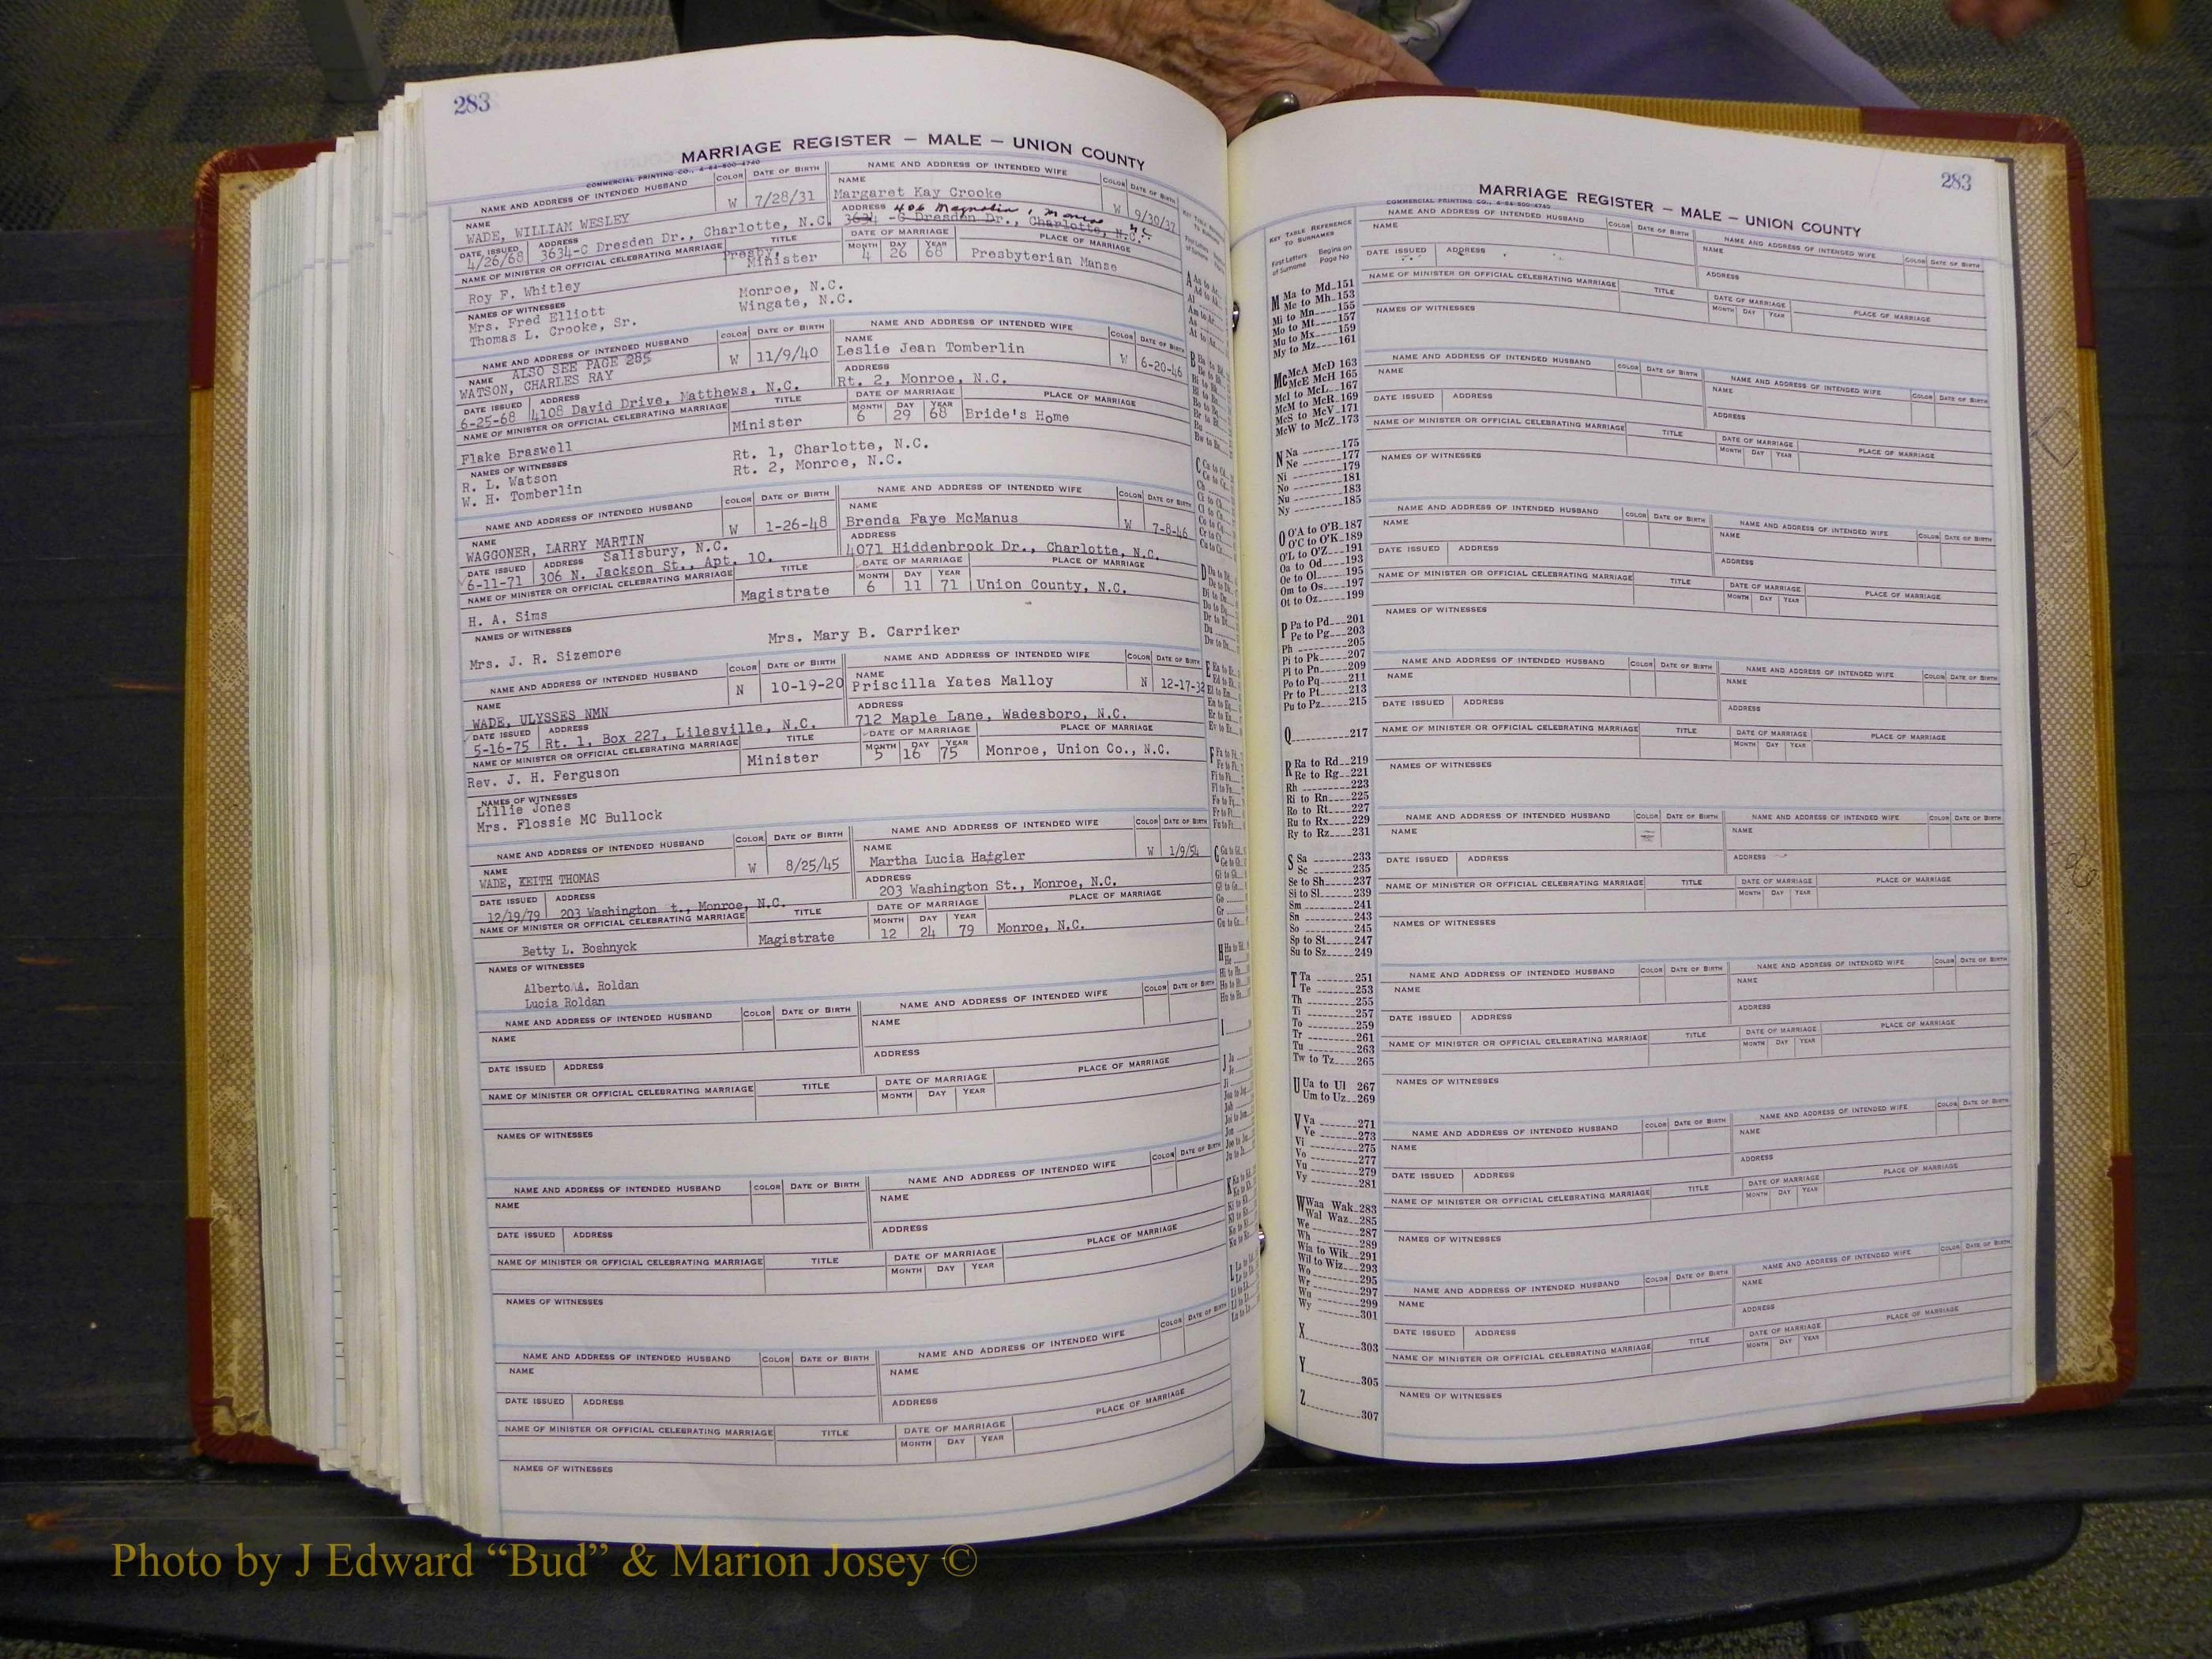 283
MARRIAGE REGISTER — MALE — UNION COUNTY
COMMERCIAL PRINTING CO., 4-64-500-4740
NAME AND ADDRESS OF INTENDED HUSBAND COLOR DATE OF BIRTH NAME AND ADDRESS OF INTENDED WIFE COLOR DATE OF BIRTH
NAME WADE, WILLIAM WESLEY W 7/28/31 NAME Margaret Kay Crooke W 9/30/37
DATE ISSUED 4/26/68 ADDRESS 3634-C Dresden Dr., Charlotte, N.C. ADDRESS 406 Magnolia, Monroe N.C. 3634 -C Dresden Dr., Charlotte, N.C.
NAME OF MINISTER OR OFFICIAL CELEBRATING MARRIAGE TITLE DATE OF MARRIAGE PLACE OF MARRIAGE
MONTH DAY YEAR
Roy F. Whitley Presby. Minister 4 26 68 Presbyterian Manse
NAMES OF WITNESSES
Mrs. Fred Elliott Monroe, N.C.
Thomas L. Crooke, Sr. Wingate, N.C.
NAME AND ADDRESS OF INTENDED HUSBAND COLOR DATE OF BIRTH NAME AND ADDRESS OF INTENDED WIFE COLOR DATE OF BIRTH
ALSO SEE PAGE 285
NAME WATSON, CHARLES RAY W 11/9/40 NAME Leslie Jean Tomberlin W 6-20-46
DATE ISSUED 6-25-68 ADDRESS 4108 David Drive, Matthews, N.C. ADDRESS Rt. 2, Monroe, N.C.
NAME OF MINISTER OR OFFICIAL CELEBRATING MARRIAGE TITLE DATE OF MARRIAGE PLACE OF MARRIAGE
MONTH DAY YEAR
Flake Braswell Minister 6 29 68 Bride's Home
NAMES OF WITNESSES
R. L. Watson Rt. 1, Charlotte, N.C.
W. H. Tomberlin Rt. 2, Monroe, N.C.
NAME AND ADDRESS OF INTENDED HUSBAND COLOR DATE OF BIRTH NAME AND ADDRESS OF INTENDED WIFE COLOR DATE OF BIRTH
NAME WAGGONER, LARRY MARTIN W 1-26-48 NAME Brenda Faye McManus W 7-8-46
Salisbury, N.C.
DATE ISSUED 6-11-71 ADDRESS 306 N. Jackson St., Apt. 10. ADDRESS 4071 Hiddenbrook Dr., Charlotte, N.C.
NAME OF MINISTER OR OFFICIAL CELEBRATING MARRIAGE TITLE DATE OF MARRIAGE PLACE OF MARRIAGE
MONTH DAY YEAR
H. A. Sims Magistrate 6 11 71 Union County, N.C.
NAMES OF WITNESSES
Mrs. J. R. Sizemore Mrs. Mary B. Carriker
NAME AND ADDRESS OF INTENDED HUSBAND COLOR DATE OF BIRTH NAME AND ADDRESS OF INTENDED WIFE COLOR DATE OF BIRTH
NAME WADE, ULYSSES NMN N 10-19-20 NAME Priscilla Yates Malloy N 12-17-32
DATE ISSUED 5-16-75 ADDRESS Rt. 1, Box 227, Lilesville, N.C. ADDRESS 712 Maple Lane, Wadesboro, N.C.
NAME OF MINISTER OR OFFICIAL CELEBRATING MARRIAGE TITLE DATE OF MARRIAGE PLACE OF MARRIAGE
MONTH DAY YEAR
Rev. J. H. Ferguson Minister 5 16 75 Monroe, Union Co., N.C.
NAMES OF WITNESSES
Lillie Jones
Mrs. Flossie MC Bullock
NAME AND ADDRESS OF INTENDED HUSBAND COLOR DATE OF BIRTH NAME AND ADDRESS OF INTENDED WIFE COLOR DATE OF BIRTH
NAME WADE, KEITH THOMAS W 8/25/45 NAME Martha Lucia Haigler W 1/9/54
DATE ISSUED 12/19/79 ADDRESS 203 Washington t., Monroe, N.C. ADDRESS 203 Washington St., Monroe, N.C.
NAME OF MINISTER OR OFFICIAL CELEBRATING MARRIAGE TITLE DATE OF MARRIAGE PLACE OF MARRIAGE
MONTH DAY YEAR
Betty L. Boshnyck Magistrate 12 24 79 Monroe, N.C.
NAMES OF WITNESSES
Alberto A. Roldan
Lucia Roldan
NAME AND ADDRESS OF INTENDED HUSBAND COLOR DATE OF BIRTH NAME AND ADDRESS OF INTENDED WIFE COLOR DATE OF BIRTH
NAME NAME
DATE ISSUED ADDRESS ADDRESS
NAME OF MINISTER OR OFFICIAL CELEBRATING MARRIAGE TITLE DATE OF MARRIAGE PLACE OF MARRIAGE
MONTH DAY YEAR
NAMES OF WITNESSES
NAME AND ADDRESS OF INTENDED HUSBAND COLOR DATE OF BIRTH NAME AND ADDRESS OF INTENDED WIFE COLOR DATE OF BIRTH
NAME NAME
DATE ISSUED ADDRESS ADDRESS
NAME OF MINISTER OR OFFICIAL CELEBRATING MARRIAGE TITLE DATE OF MARRIAGE PLACE OF MARRIAGE
MONTH DAY YEAR
NAMES OF WITNESSES
NAME AND ADDRESS OF INTENDED HUSBAND COLOR DATE OF BIRTH NAME AND ADDRESS OF INTENDED WIFE COLOR DATE OF BIRTH
NAME NAME
DATE ISSUED ADDRESS ADDRESS
NAME OF MINISTER OR OFFICIAL CELEBRATING MARRIAGE TITLE DATE OF MARRIAGE PLACE OF MARRIAGE
MONTH DAY YEAR
NAMES OF WITNESSES
283
MARRIAGE REGISTER — MALE — UNION COUNTY
COMMERCIAL PRINTING CO., 4-64-500-4740
KEY TABLE REFERENCE TO SURNAMES
First Letters of Surname Begins on Page No
M Ma to Md 151
Me to Mh 153
Mi to Mn 155
Mo to Mt 157
Mu to Mx 159
My to Mz 161
Mc McA McD 163
McE McH 165
McI to McL 167
McM to McR 169
McS to McV 171
McW to McZ 173
N Na 175
Ne 177
Ni 179
No 181
Nu 183
Ny 185
O O'A to O'B 187
O'C to O'K 189
O'L to O'Z 191
Oa to Od 193
Oe to Ol 195
Om to Os 197
Ot to Oz 199
P Pa to Pd 201
Pe to Pg 203
Ph 205
Pi to Pk 207
Pl to Pn 209
Po to Pq 211
Pr to Pt 213
Pu to Pz 215
Q 217
R Ra to Rd 219
Re to Rg 221
Rh 223
Ri to Rn 225
Ro to Rt 227
Ru to Rx 229
Ry to Rz 231
S Sa 233
Sc 235
Se to Sh 237
Si to Sl 239
Sm 241
Sn 243
So 245
Sp to St 247
Su to Sz 249
T Ta 251
Te 253
Th 255
Ti 257
To 259
Tr 261
Tu 263
Tw to Tz 265
U Ua to Ul 267
Um to Uz 269
V Va 271
Ve 273
Vi 275
Vo 277
Vu 279
Vy 281
W Waa Wak 283
Wal Waz 285
We 287
Wh 289
Wia to Wik 291
Wil to Wiz 293
Wo 295
Wr 297
Wu 299
Wy 301
X 303
Y 305
Z 307
NAME AND ADDRESS OF INTENDED HUSBAND COLOR DATE OF BIRTH NAME AND ADDRESS OF INTENDED WIFE COLOR DATE OF BIRTH
NAME NAME
DATE ISSUED ADDRESS ADDRESS
NAME OF MINISTER OR OFFICIAL CELEBRATING MARRIAGE TITLE DATE OF MARRIAGE PLACE OF MARRIAGE
MONTH DAY YEAR
NAMES OF WITNESSES
NAME AND ADDRESS OF INTENDED HUSBAND COLOR DATE OF BIRTH NAME AND ADDRESS OF INTENDED WIFE COLOR DATE OF BIRTH
NAME NAME
DATE ISSUED ADDRESS ADDRESS
NAME OF MINISTER OR OFFICIAL CELEBRATING MARRIAGE TITLE DATE OF MARRIAGE PLACE OF MARRIAGE
MONTH DAY YEAR
NAMES OF WITNESSES
NAME AND ADDRESS OF INTENDED HUSBAND COLOR DATE OF BIRTH NAME AND ADDRESS OF INTENDED WIFE COLOR DATE OF BIRTH
NAME NAME
DATE ISSUED ADDRESS ADDRESS
NAME OF MINISTER OR OFFICIAL CELEBRATING MARRIAGE TITLE DATE OF MARRIAGE PLACE OF MARRIAGE
MONTH DAY YEAR
NAMES OF WITNESSES
NAME AND ADDRESS OF INTENDED HUSBAND COLOR DATE OF BIRTH NAME AND ADDRESS OF INTENDED WIFE COLOR DATE OF BIRTH
NAME NAME
DATE ISSUED ADDRESS ADDRESS
NAME OF MINISTER OR OFFICIAL CELEBRATING MARRIAGE TITLE DATE OF MARRIAGE PLACE OF MARRIAGE
MONTH DAY YEAR
NAMES OF WITNESSES
NAME AND ADDRESS OF INTENDED HUSBAND COLOR DATE OF BIRTH NAME AND ADDRESS OF INTENDED WIFE COLOR DATE OF BIRTH
NAME NAME
DATE ISSUED ADDRESS ADDRESS
NAME OF MINISTER OR OFFICIAL CELEBRATING MARRIAGE TITLE DATE OF MARRIAGE PLACE OF MARRIAGE
MONTH DAY YEAR
NAMES OF WITNESSES
NAME AND ADDRESS OF INTENDED HUSBAND COLOR DATE OF BIRTH NAME AND ADDRESS OF INTENDED WIFE COLOR DATE OF BIRTH
NAME NAME
DATE ISSUED ADDRESS ADDRESS
NAME OF MINISTER OR OFFICIAL CELEBRATING MARRIAGE TITLE DATE OF MARRIAGE PLACE OF MARRIAGE
MONTH DAY YEAR
NAMES OF WITNESSES
NAME AND ADDRESS OF INTENDED HUSBAND COLOR DATE OF BIRTH NAME AND ADDRESS OF INTENDED WIFE COLOR DATE OF BIRTH
NAME NAME
DATE ISSUED ADDRESS ADDRESS
NAME OF MINISTER OR OFFICIAL CELEBRATING MARRIAGE TITLE DATE OF MARRIAGE PLACE OF MARRIAGE
MONTH DAY YEAR
NAMES OF WITNESSES
NAME AND ADDRESS OF INTENDED HUSBAND COLOR DATE OF BIRTH NAME AND ADDRESS OF INTENDED WIFE COLOR DATE OF BIRTH
NAME NAME
DATE ISSUED ADDRESS ADDRESS
NAME OF MINISTER OR OFFICIAL CELEBRATING MARRIAGE TITLE DATE OF MARRIAGE PLACE OF MARRIAGE
MONTH DAY YEAR
NAMES OF WITNESSES
Photo by J Edward “Bud” & Marion Josey ©